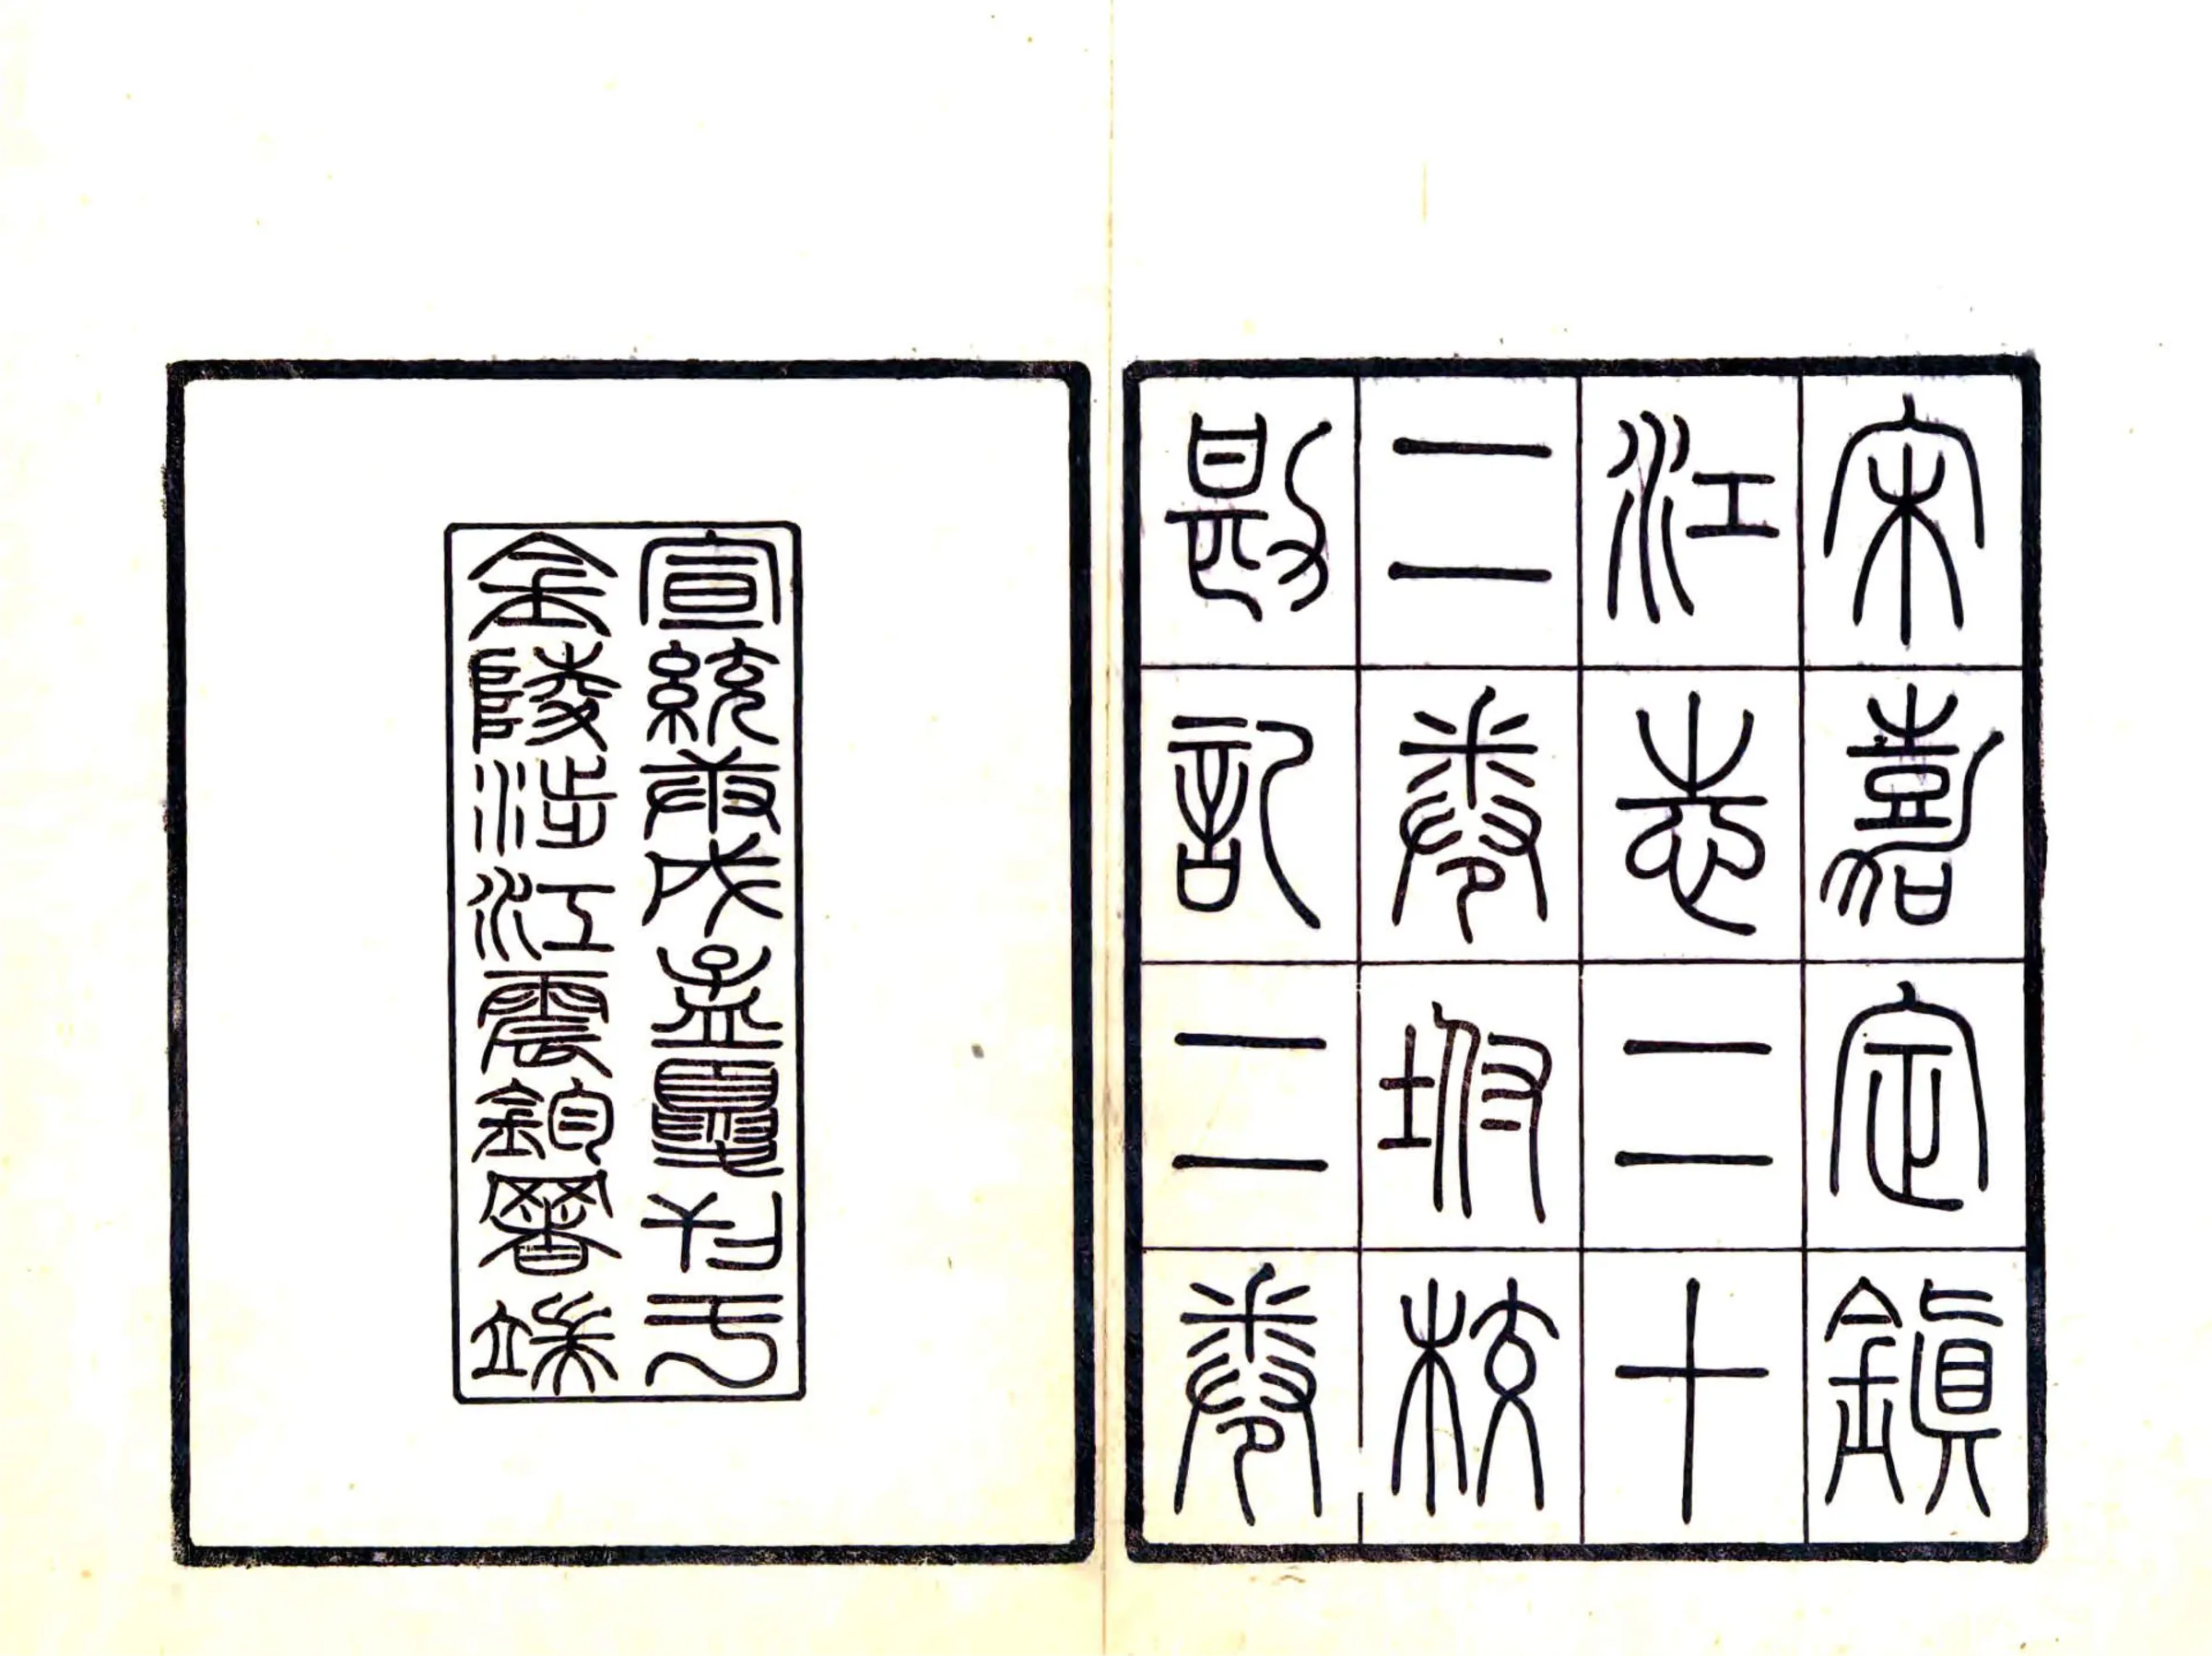 宋嘉定鎮
江志二十
二卷坿校
勘記二卷
宣統庚戌孟夏刊于
金陵涉江震鈞署端